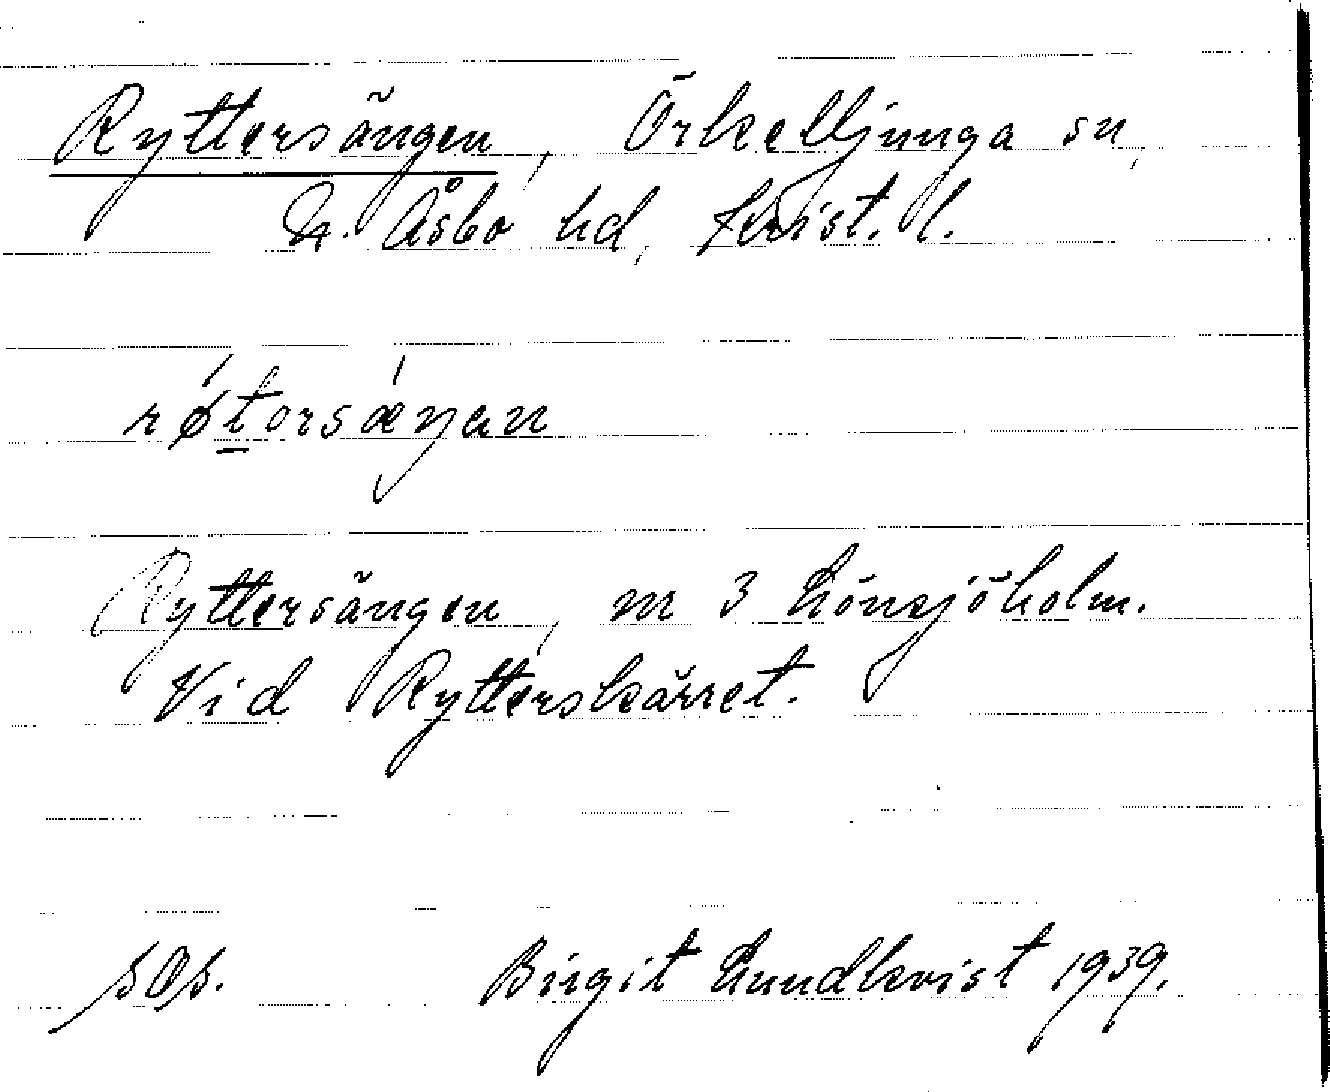 Ryttersängen, Örkelljunga sn,
N. Åsbo hd, Krist. l.
røtorsæŋan
Ryttersängen, m 3 Lönsjöholm.
Vid Rytterskärret.
sOs. Birgit Lundkvist 1939.